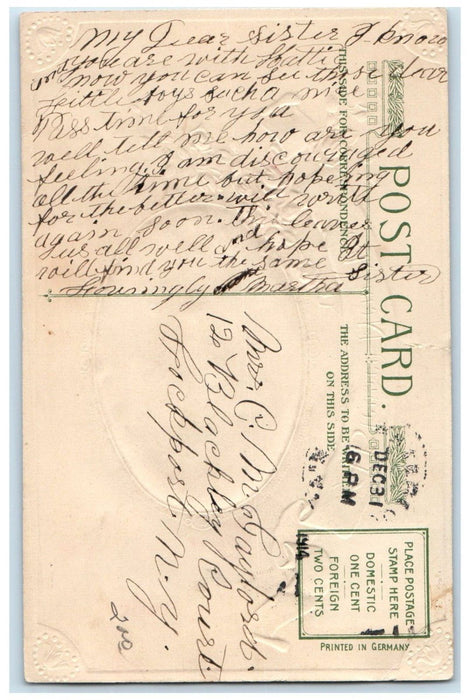 My Dear sister I know
you are with Hattie
now you can see those dear
Little boys such a nice
time for you
well tell me how are you
feeling. I am discouraged
all the time but hopeing
for the better will write
again soon. This leaves
us all well and hope It
will find you the same Sister
Lovingly Martha
THIS SIDE FOR CORRESPONDENCE
POST CARD.
THE ADDRESS TO BE WRITTEN
ON THIS SIDE
Mrs. C. M. Gaylord.
120 Blackley Court
Lockport N.Y.
DEC 31
6 PM
1914
PLACE POSTAGE
STAMP HERE
DOMESTIC
ONE CENT
FOREIGN
TWO CENTS
PRINTED IN GERMANY
200